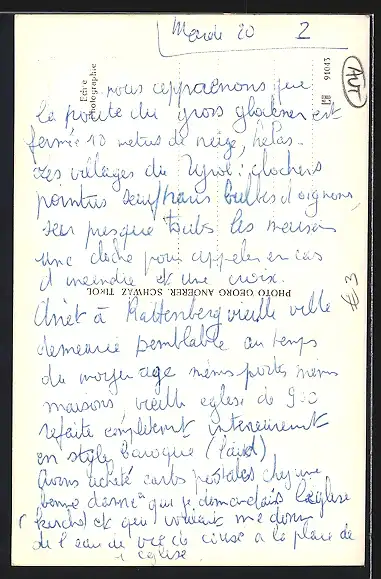 Mardi 20
2
Echte
Photographie
91043
Aut
nous apprenons que
la route du gross glockner est
fermée 10 metres de neige, helas..
Les villages du Tyrol : clochers
pointus bulbes d oignons
sur presque toutes les maisons
une cloche pour appeler en cas
d incendie et une croix.
PHOTO GEORG ANGERER, SCHWAZ, TIROL
€3
Arret à Rattenberg vieille ville
demeurée semblable au temps
du moyen age mêmes portes mêmes
maisons, vieille eglise de 900
refaite completement interieurement
en style baroque (laid)
Avons acheté cartes postales chez une
bonne dame a qui je demandais l'église
(kirche) et qui voulait me donner
de l'eau de vie de cerise a la place de
l église